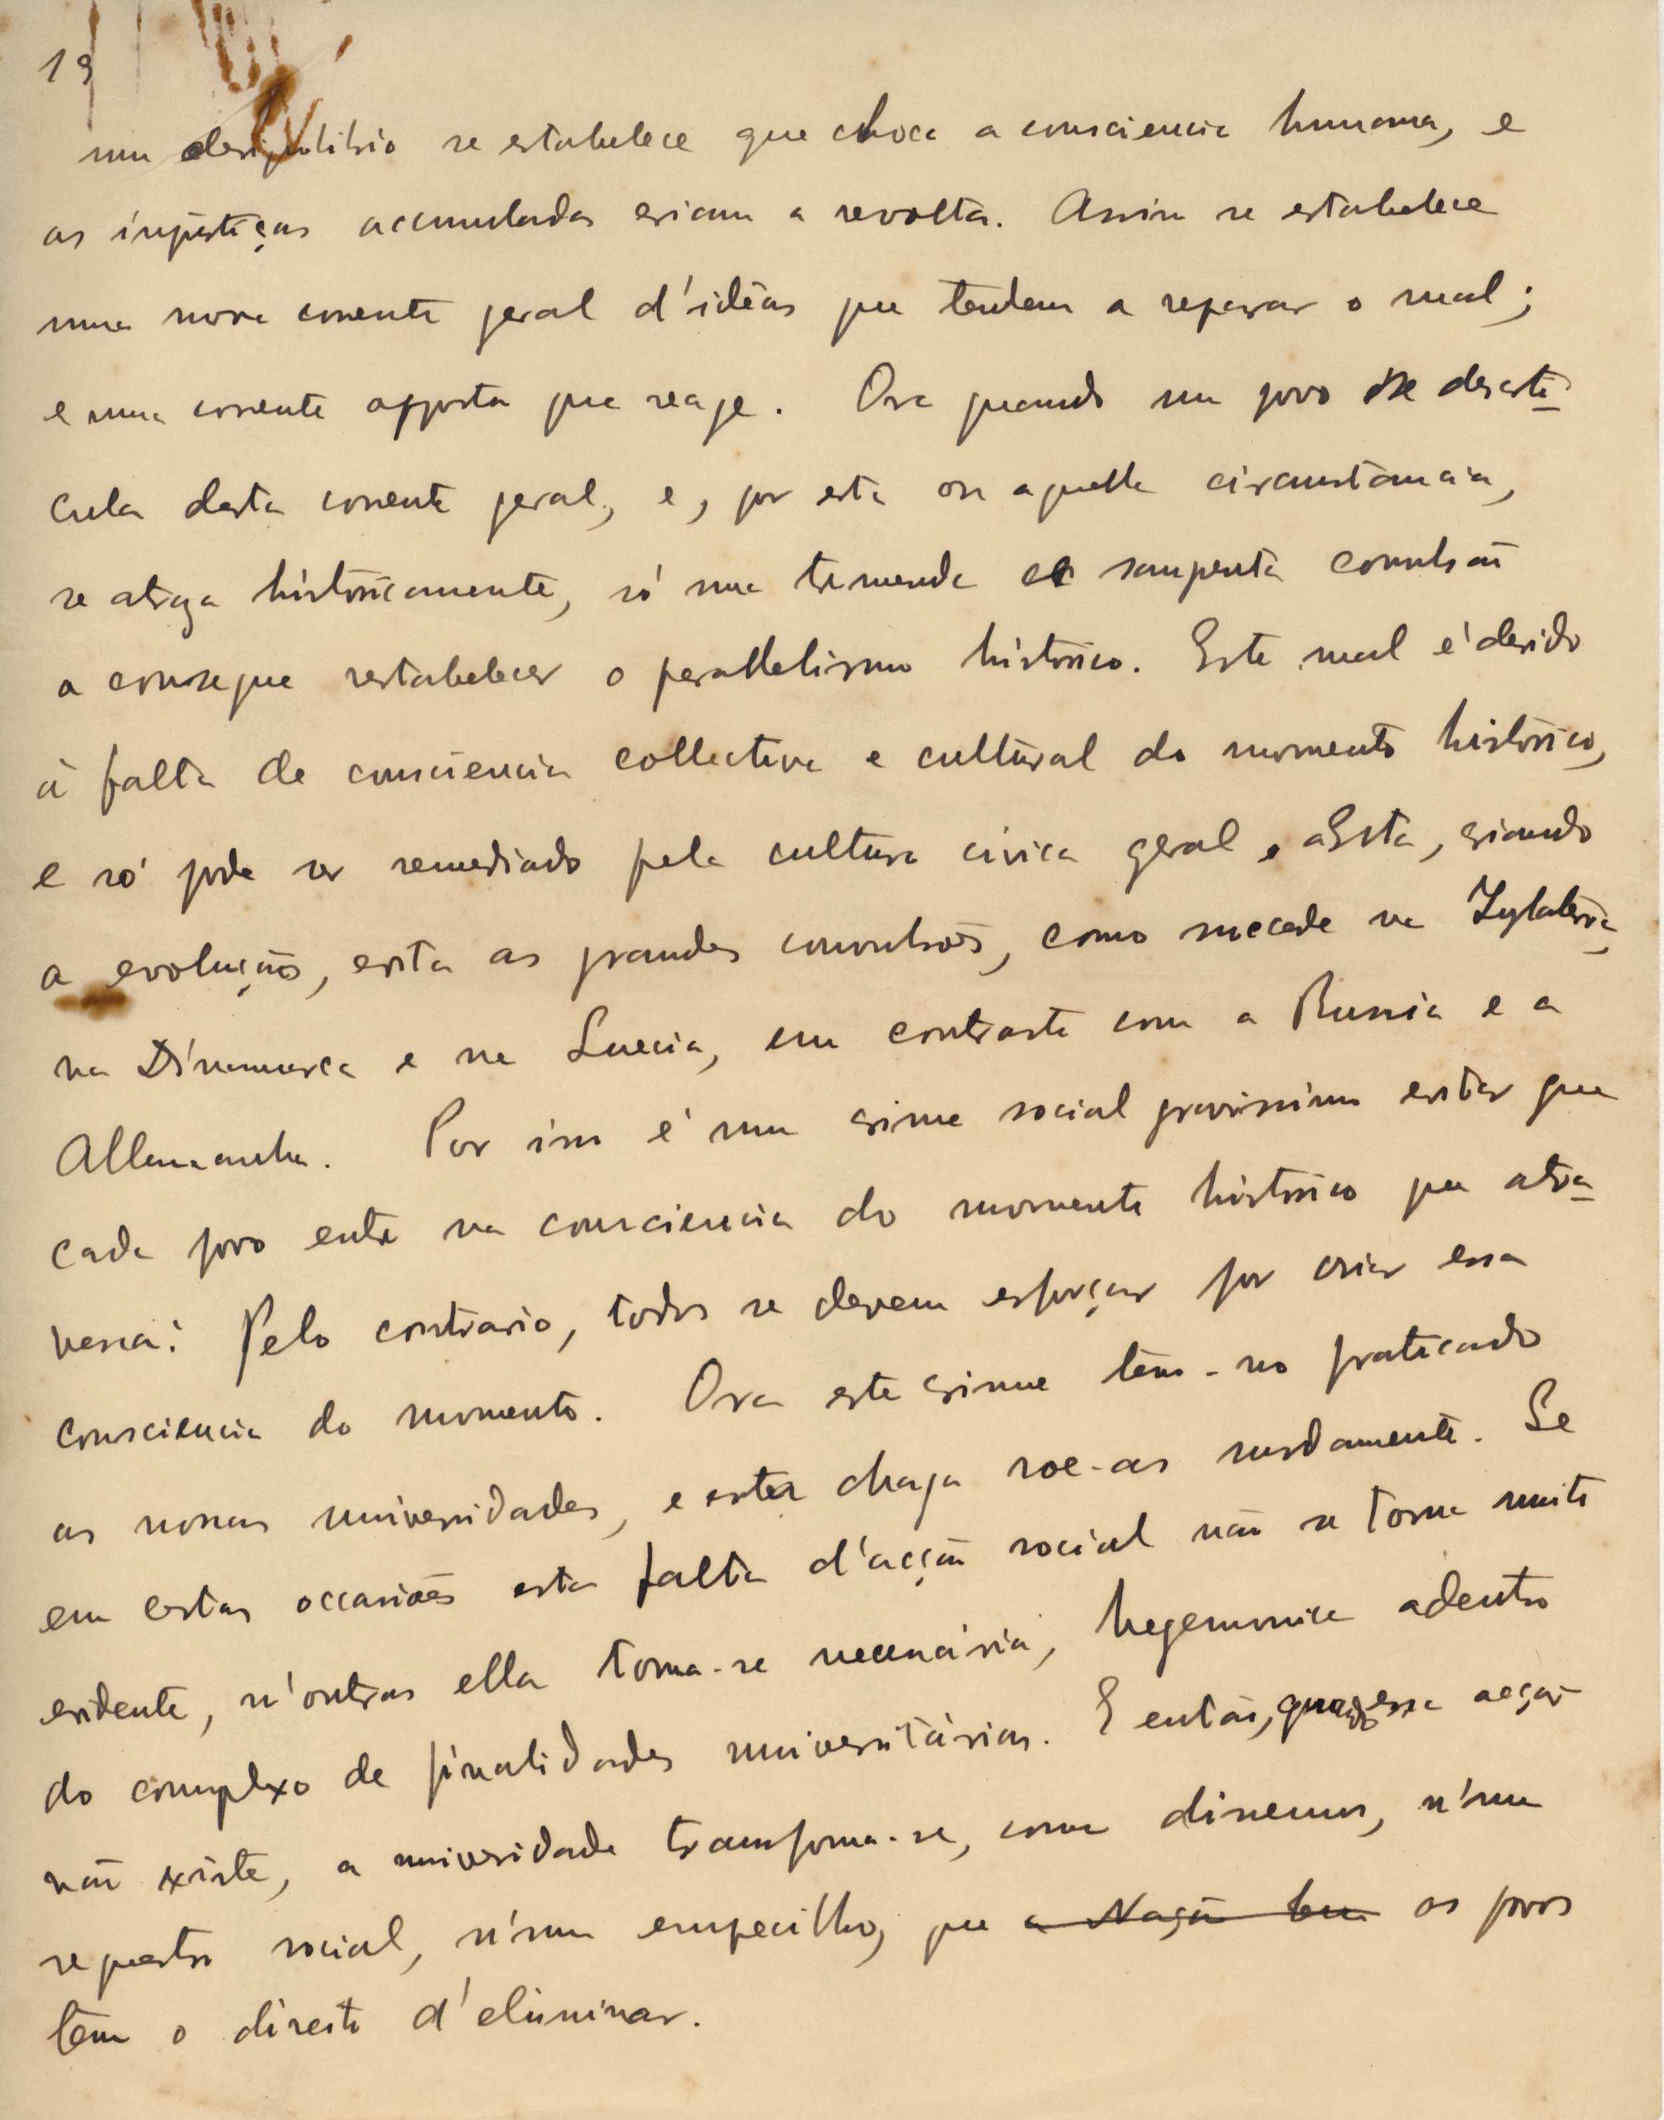 19
um desiquilibrio se estabelece que choca a consciencia humana, e
as injustiças accumuladas criam a revolta. Assim se estabelece
uma nova corrente geral d'idêas que tendem a reparar o mal;
e uma corrente opposta que reage. Ora quando um povo se desarti-
cula desta corrente geral, e, por esta ou aquella circumstancia,
se atraza històricamente, só uma tremenda e sangrenta convulsão
o consegue restabelecer o parallelismo histórico. Este mal é devido
á falta de consciencia collectiva e cultural do momento histórico,
e só pode ser remediado pela cultura civica geral. Esta, criando
a evolução, evita as grandes convulsões, como succede na Inglaterra,
na Dinamarca e na Suecia, em contraste com a Russia e a
Allemanha. Por isso é um crime social gravissimo evitar que
cada povo entre na consciencia do momento histórico que atra-
vessa: Pelo contrario, todos se devem esforçar por criar essa
consciencia do momento. Ora este crime têm-no praticado
as nossas universidades, e esta chaga roe-as surdamente. Se
em certas occasiões esta falta d'acção social não se torna muito
evidente, n'outras ella torna-se necessária, hegemonica adentro
do complexo de finalidades universitárias. E então, quando essa acção
não existe, a universidade transforma-se, como dissemos, n'um
sequestro social, n'um empecilho, que a Nação tem os povos
têm o direito d'eliminar.